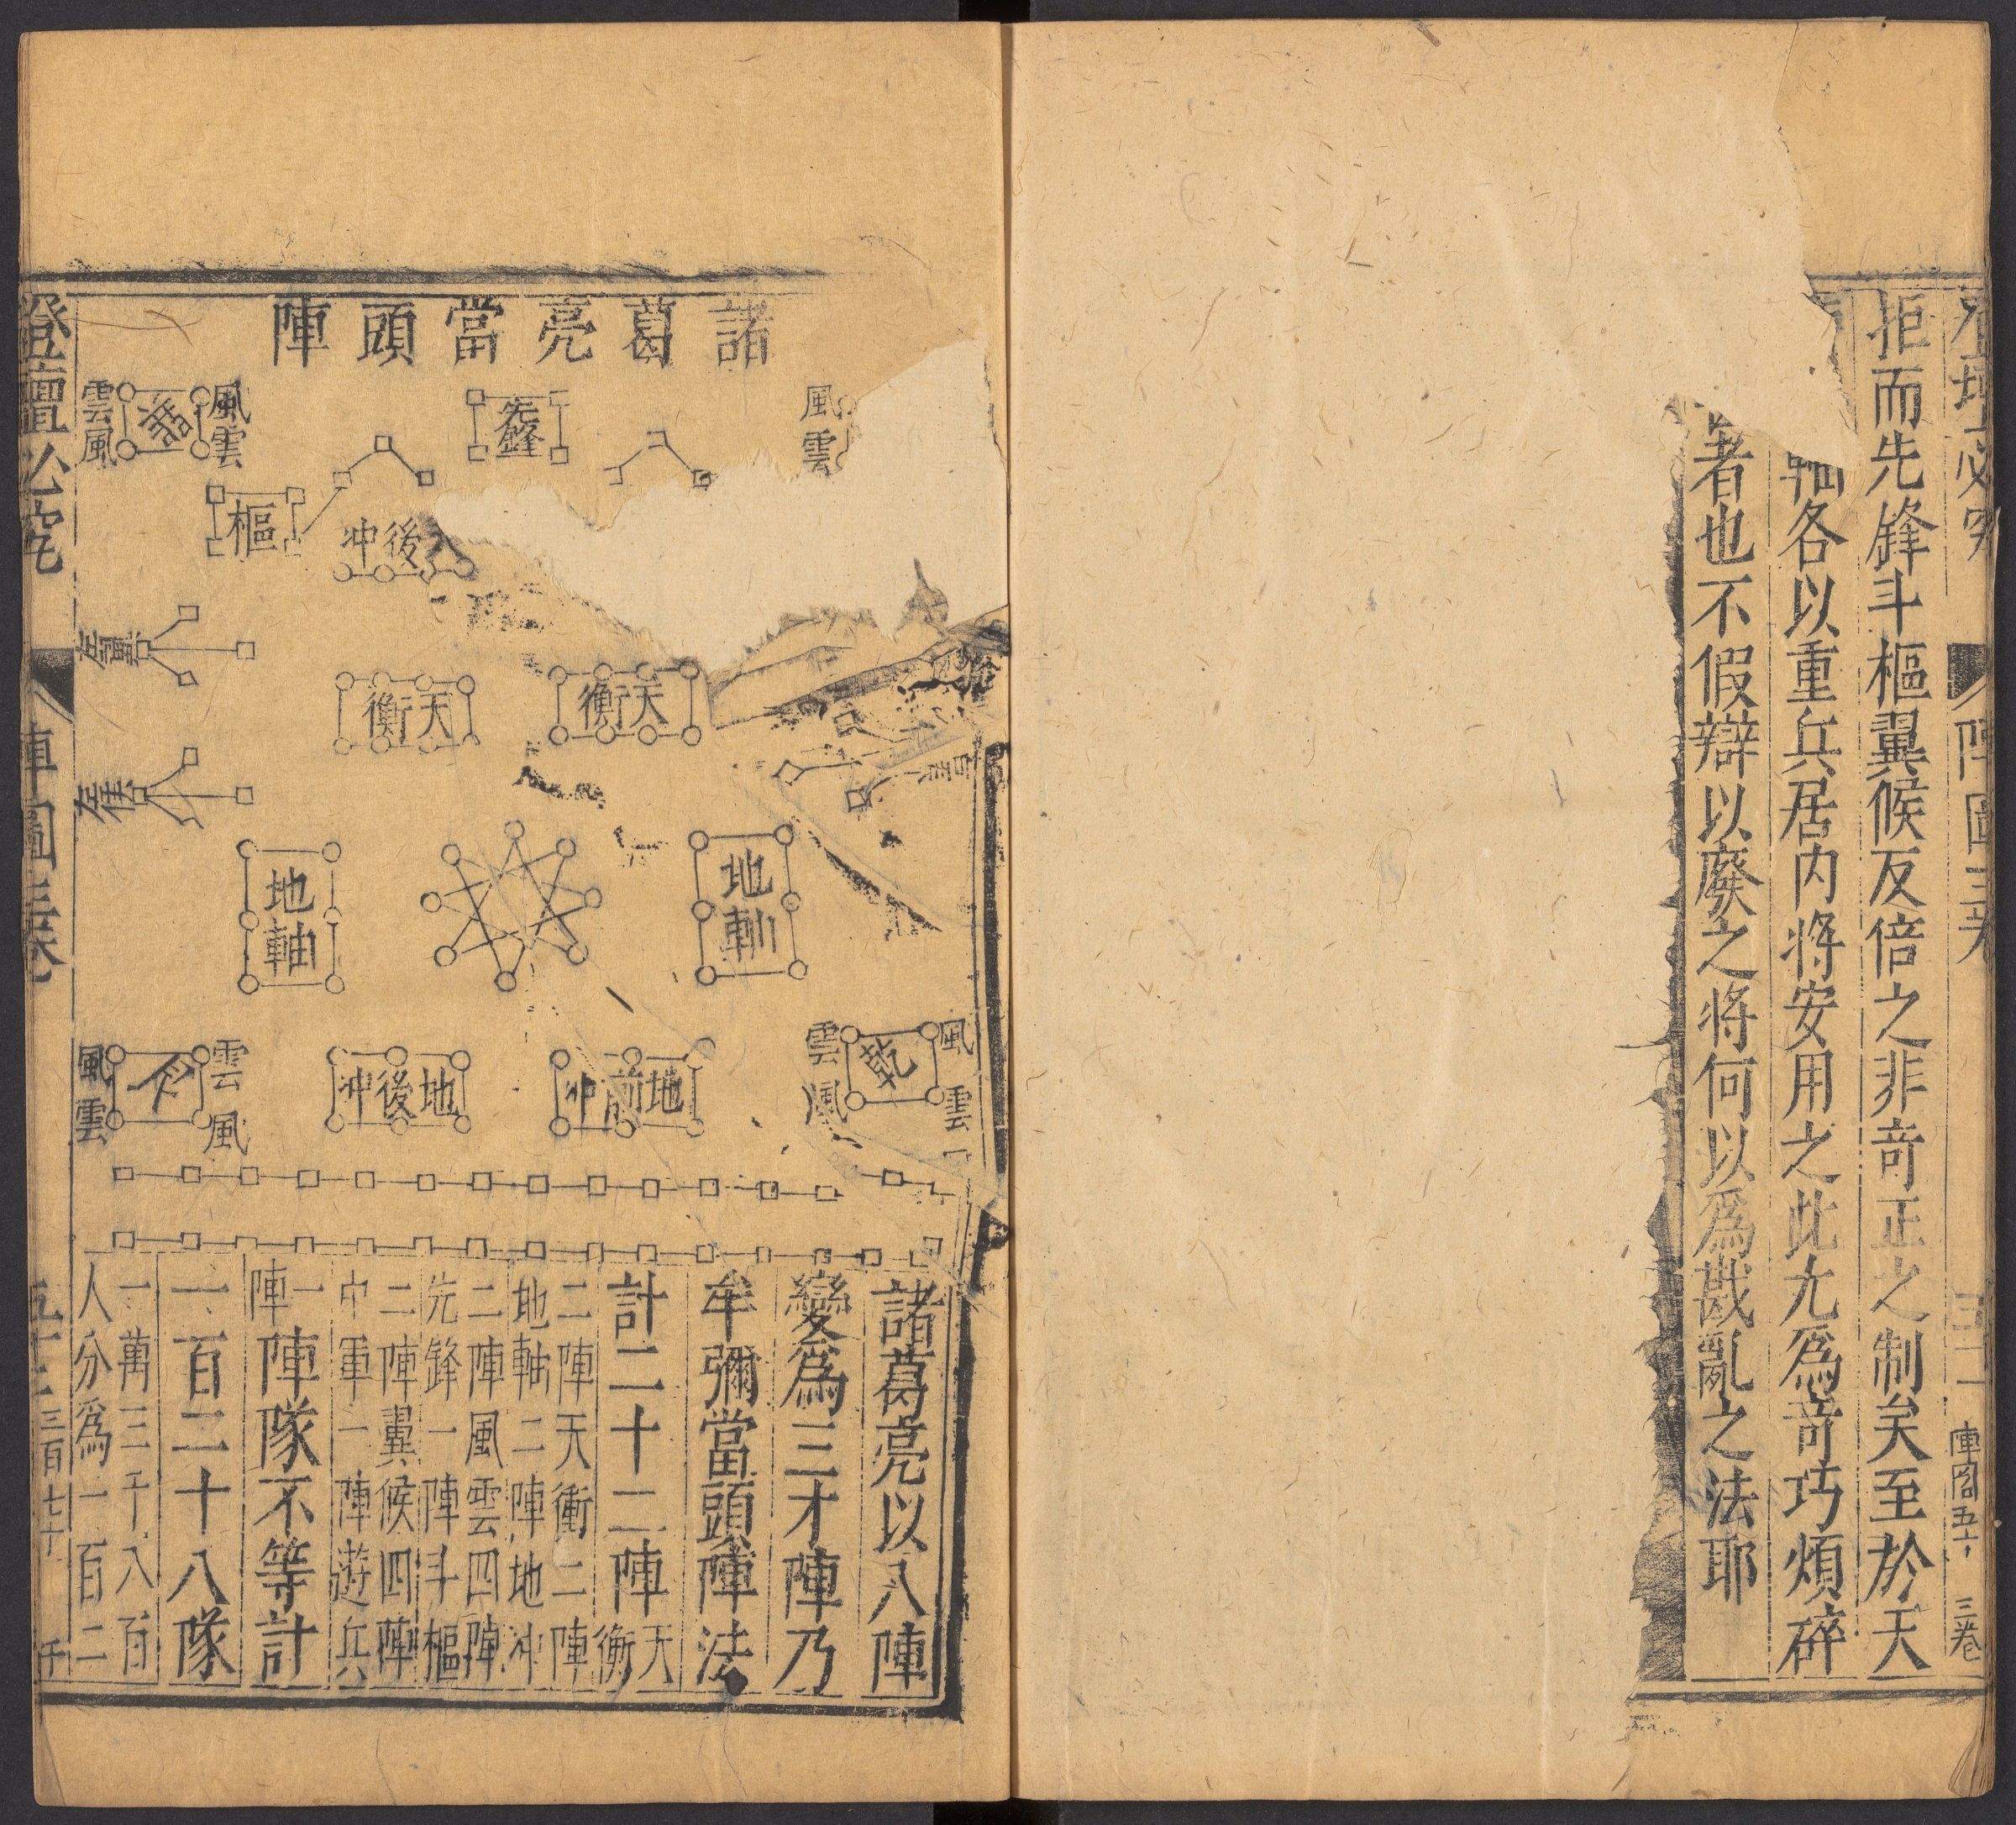 拒而先鋒斗樞翼候反倍之非竒正之制矣至於天
軸各以重兵居内将安用之此尤爲竒巧煩碎
者也不假辯以廢之将何以爲戡亂之法耶
陣圖三卷
陣圖五十
三卷
諸葛亮當頭陣
風雲
先鋒
風雲
雲風
樞
後冲
左翼
天衡
天衡
左候
地軸
地軸
風雲
乾
雲風
地前冲
地後冲
雲風
風雲
諸葛亮以八陣
變爲三才陣乃
牟彌當頭陣法
計二十二陣天衡
二陣天衝二陣
地軸二陣地冲
二陣風雲四陣
先鋒一陣斗樞
二陣翼候四陣
中軍一陣遊兵
一陣陣隊不等計
一百二十八隊
一萬三千八百
人分爲一百二
登壇必究
陣圖三卷
三百七十